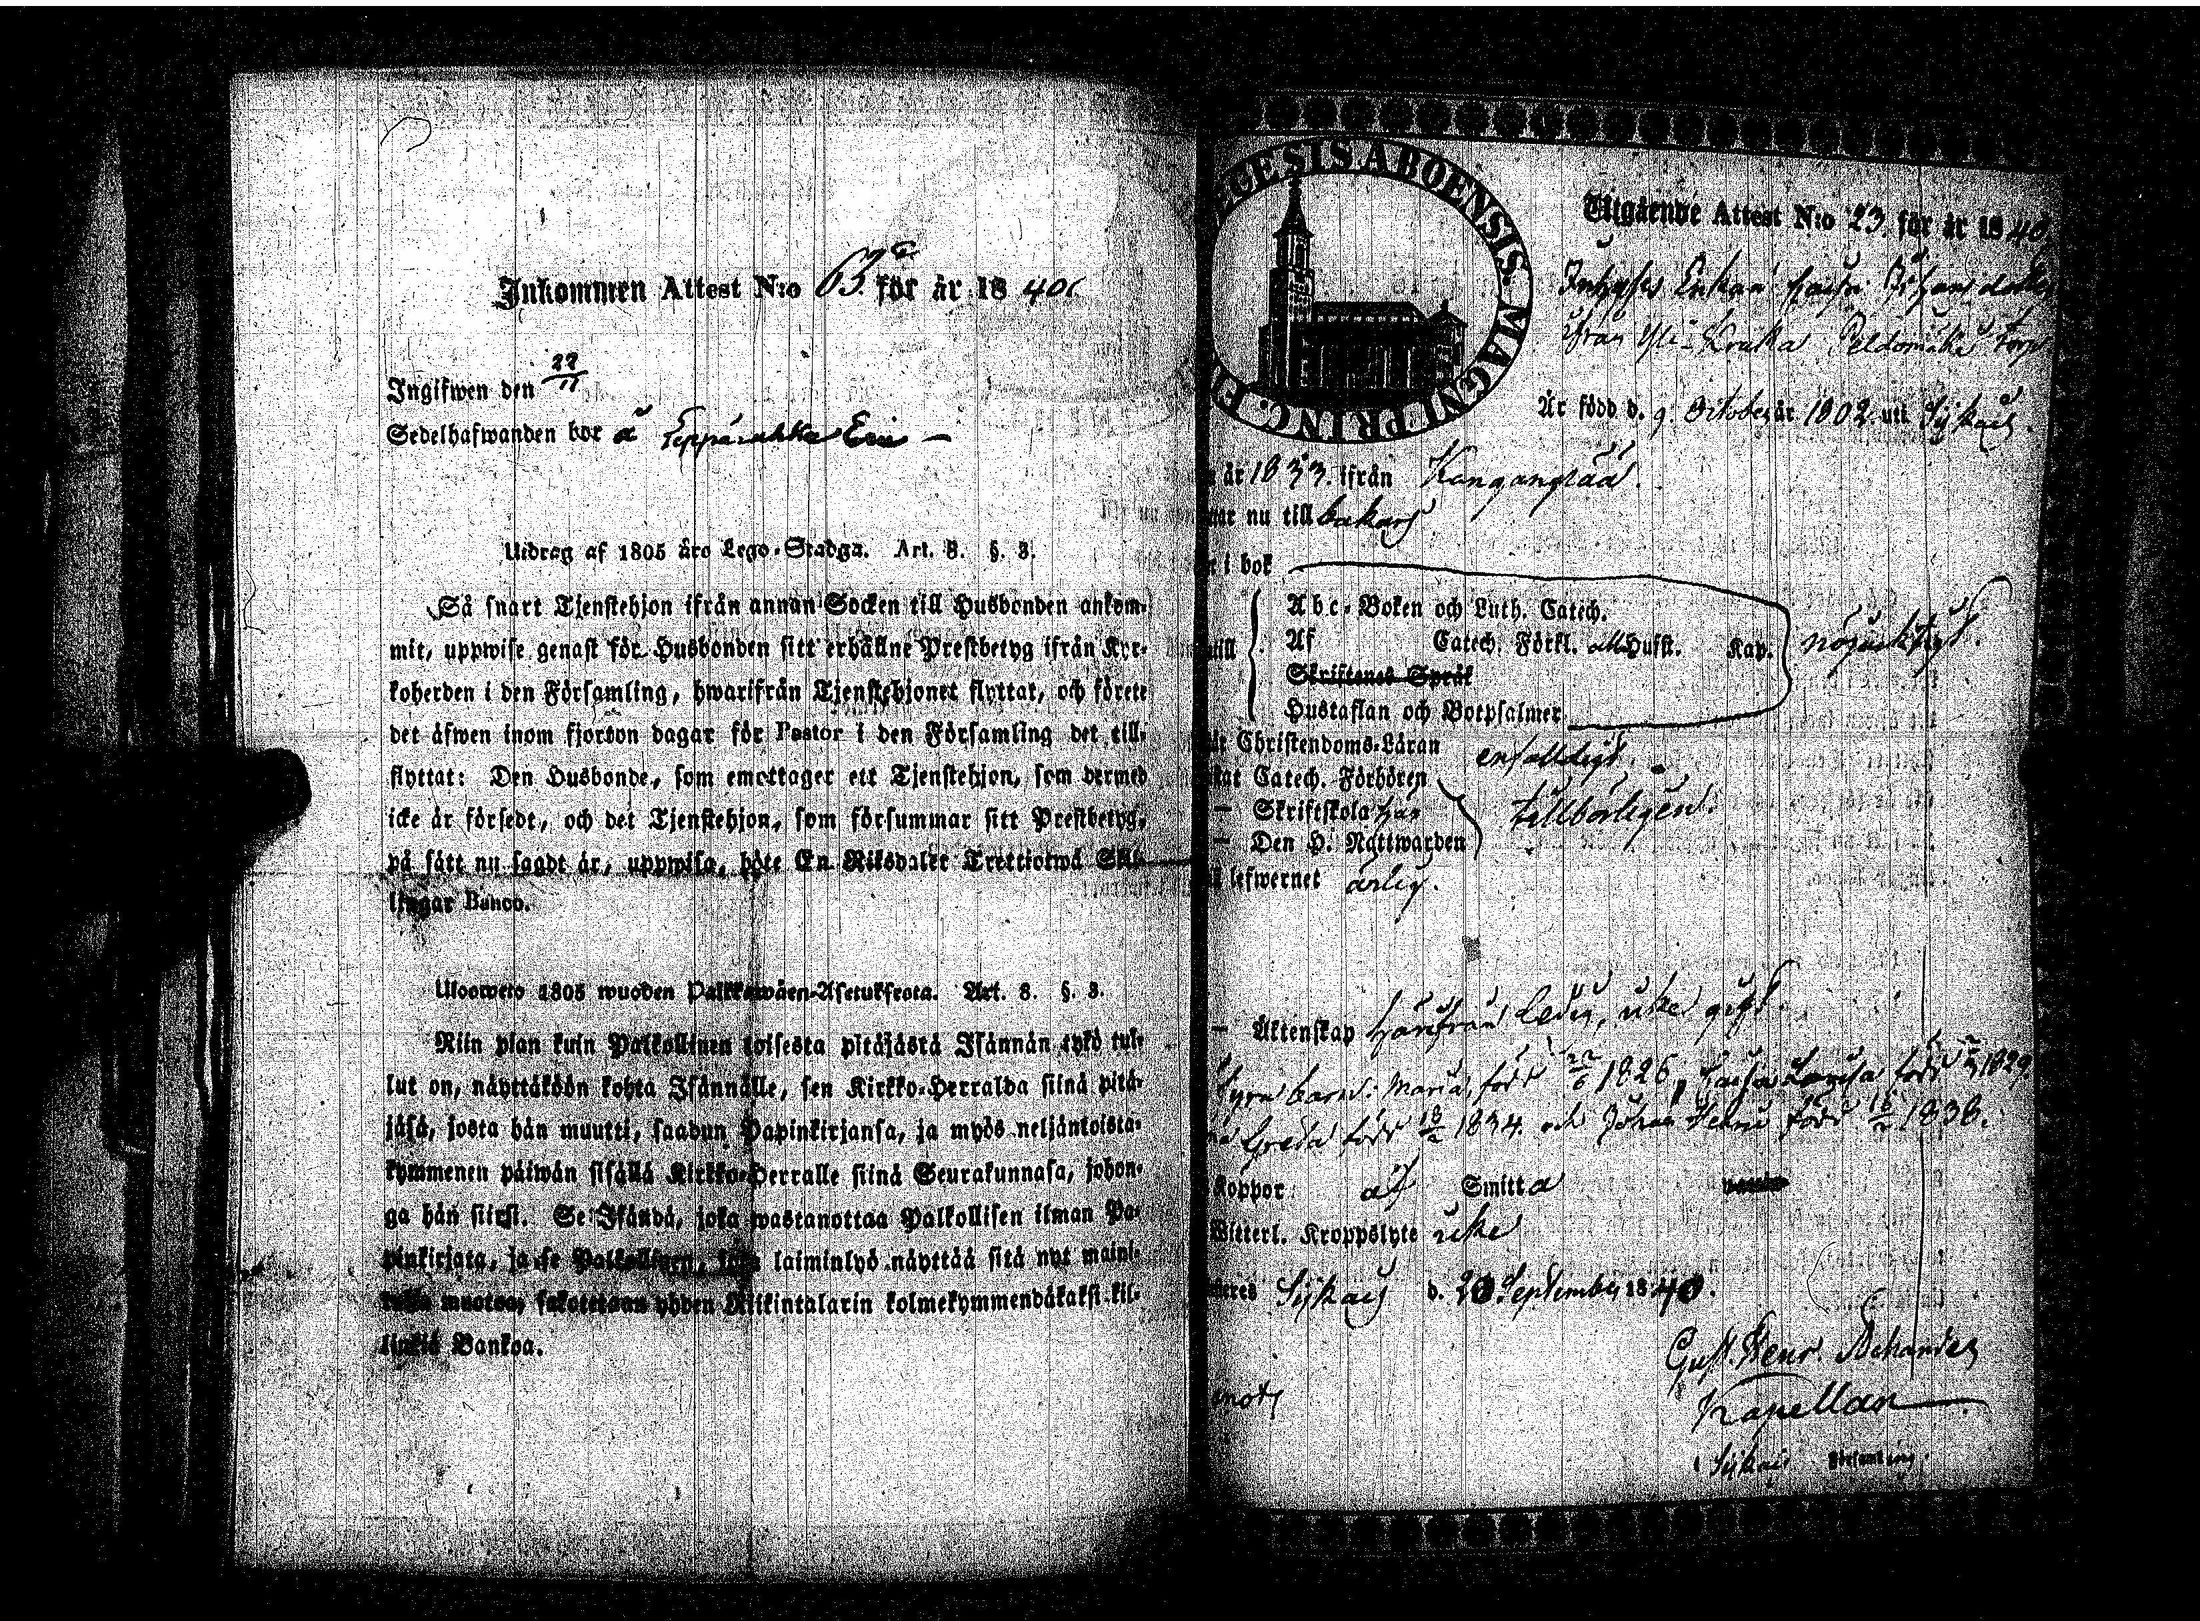 Inkommen Attest N:o 63 för år 1840.
Ingifwen den 22/11
Sedelhafwanden bor å
Utdrag af 1805 års Lego-Stadga. Art. 8. §. 3.
Så snart Tjenstehjon ifrån annan Socken till Husbonden ankom-
mit, uppwise genast för Husbonden sitt erhållne Prestbetyg ifrån Kyr-
koherden i den Församling, hwarifrån Tjenstehjonet flyttat, och förete
det äfwen inom fjorton dagar för Pastor i den Församling det till-
flyttat: Den Husbonde, som emottager ett Tjenstehjon, som dermed
icke är försedt, och det Tjenstehjon, som försummar sitt Prestbetyg,
på sätt nu sagdt är, uppwisa, böte En Riksdaler Trettiotwå Skil-
lingar Banco.
Uloosweto 1805 wuoden Palkkawäen-Asetuksesta. Art. 8. §. 3.
Niin pian kuin Palkollinen toisesta pitäjästä Isännän tykö tul-
lut on, näyttäköön kohta Isännälle, sen Kirkko-Herralda siinä pitä-
jäsä, josta hän muutti, saadun Papinkirjansa, ja myös neljäntoista-
kymmenen päiwän sisällä Kirkko-Herralle siinä Seurakunnasa, johon-
ga hän siirsi. Se Isändä, joka wastanottaa Palkollisen ilman Pa-
pinkirjata, ja se Palkollinen, kuin laiminlyö näyttää sitä nyt maini-
tulla muotoa, sakotetaan yhden Riikintalarin kolmekymmendäkaksi kil-
lingiä Bankoa.
ECESIS ABOENSIS MAGNI PRINC. FI
Utgående Attest N:o 23. för år 1840.
Inhyses Enkan Caisa Johansdotter
från Yli-Knuka Peldomäki torp
Är född d. 9 October år 1802. uti Sijkais.
år 1833. ifrån Kangasniemi
nu till bakars
i bok
Abc-Boken och Luth. Catech.
till Af Catech. Förkl. och Hufst. Kap. nöjaktigt.
Skriftenes Språk
Hustaflan och Botpsalmer
Christendoms-Läran enfalldigt.
Catech. Förhören
— Skriftskola har tillbörligen.
— Den H. Nattwarden
lefwernet ärlig.
— Äktenskap härifrån ledig, icke gift.
fyra barn: Maria, född 22/6 1826, Caisa Lovisa född 1829,
Greta född 18/2 1834. och Johan Henric född 16/2 1838.
Koppor af Smitta
Witterl. Kroppslyte icke
Sijkais d. 20 September 1840.
Gust. Henr.
Kapellan
Sijkais Församling.